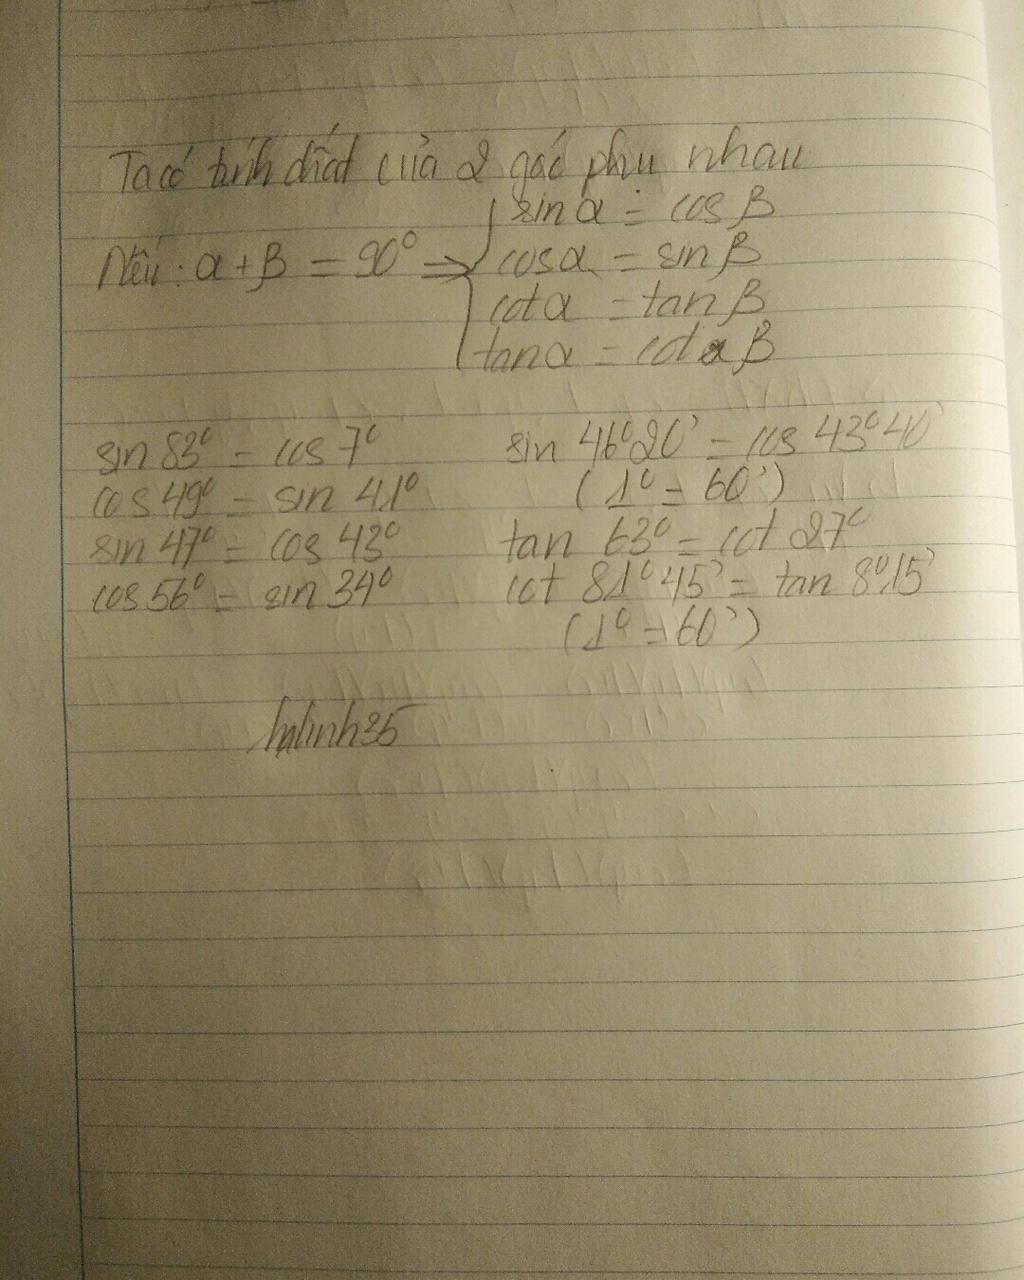 Ta có tính chất của 2 góc phụ nhau
Nếu : α + β = 90° ⇒ { sin α = cos β
cos α = sin β
cot α = tan β
tan α = cot β
sin 83° = cos 7°
cos 49° = sin 41°
sin 47° = cos 43°
cos 56° = sin 34°
sin 46°20' = cos 43°40'
(1° = 60')
tan 63° = cot 27°
cot 81°45' = tan 8°15'
(1° = 60')
halinh35